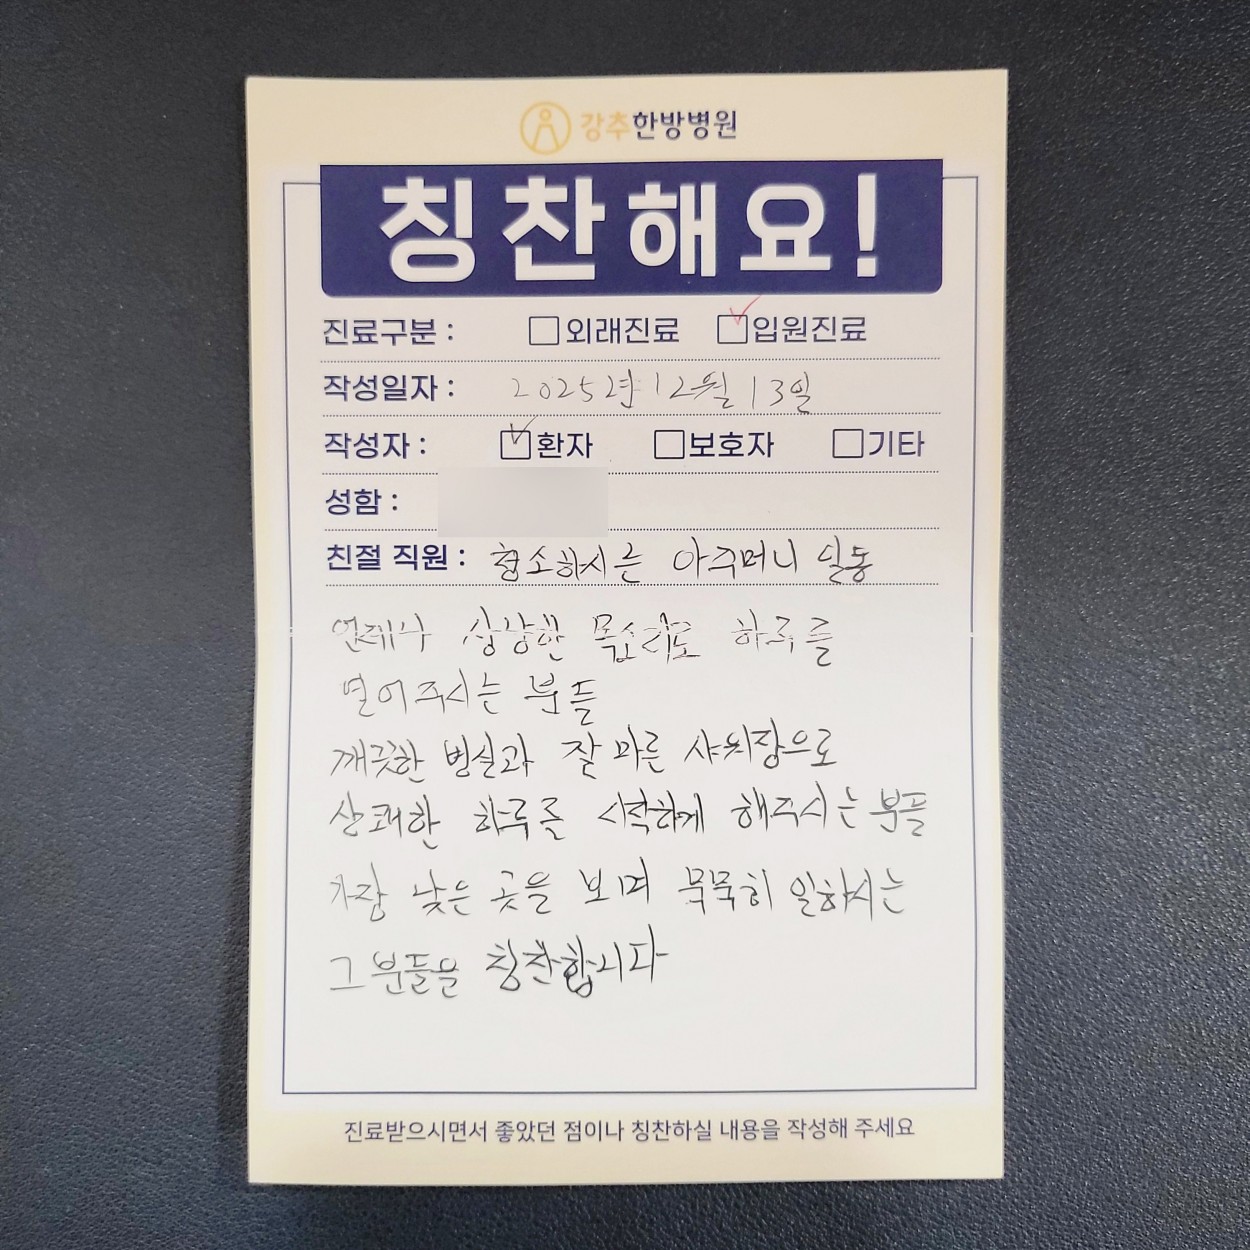 강추한방병원
칭찬해요!
진료구분 : □외래진료 ☑입원진료
작성일자 : 2025년 12월 13일
작성자 : ☑환자 □보호자 □기타
성함 :
친절 직원 : 청소하시는 아주머니 일동
언제나 상냥한 목소리로 하루를
열어주시는 분들
깨끗한 병실과 잘 마른 샤워장으로
상쾌한 하루를 시작하게 해주시는 분들
가장 낮은 곳을 보며 묵묵히 일하시는
그분들을 칭찬합니다
진료받으시면서 좋았던 점이나 칭찬하실 내용을 작성해 주세요